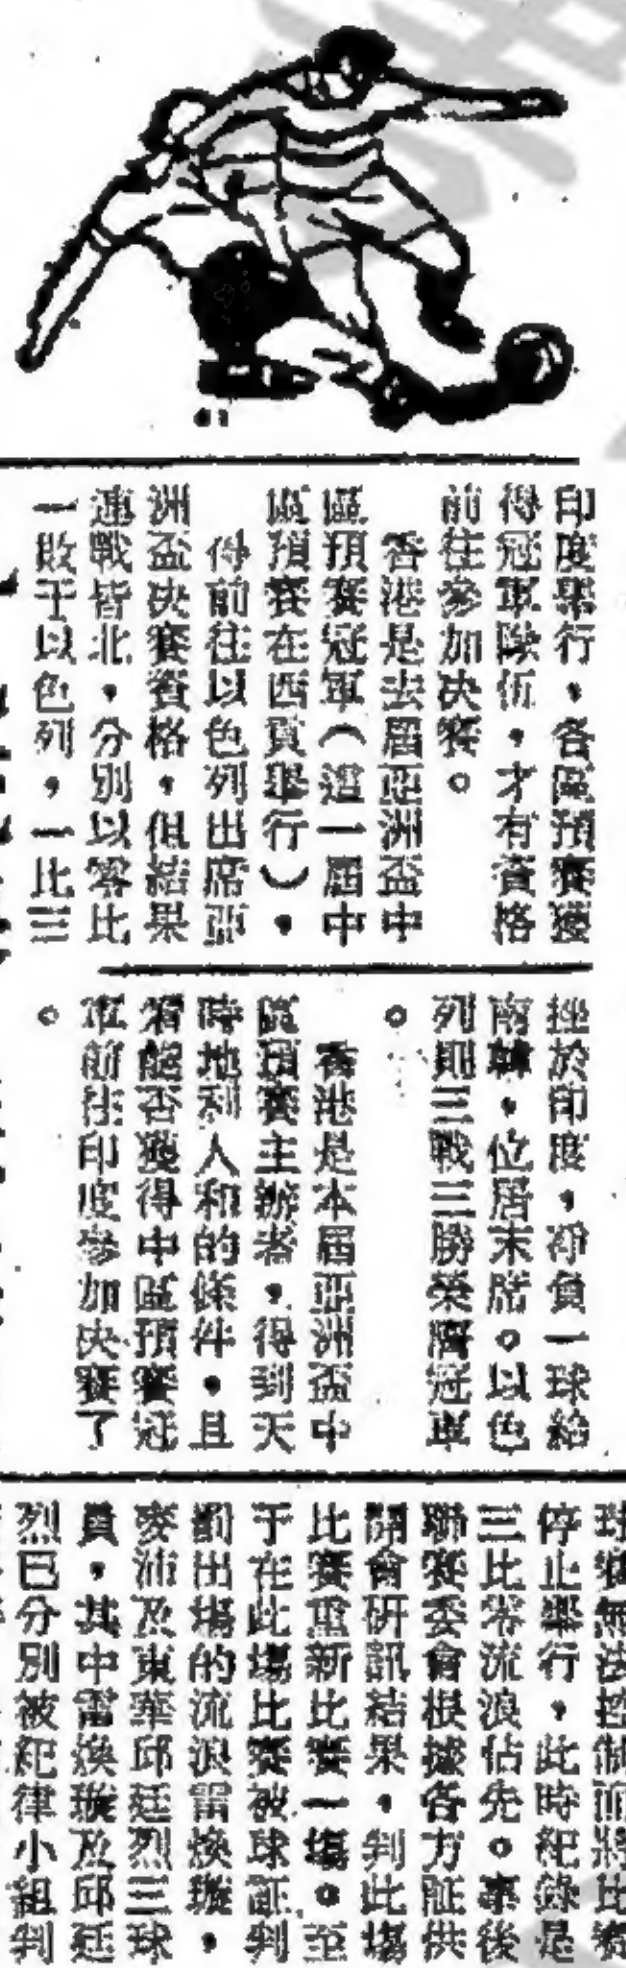 印度舉行，各區預賽獲
得冠軍隊伍，才有資格
前往參加决賽。
香港是去屆亞洲盃中
區預賽冠軍（這一屆中
區預賽在西貢舉行），
得前往以色列出席亞
洲盃决賽資格，但結果
連戰皆北，分別以零比
一敗于以色列，一比三
挫於印度，淨負一球給
南韓，位居末席。以色
列則三戰三勝榮膺冠軍
。
香港是本屆亞洲盃中
區預賽主辦者，得到天
時地利人和的條件，且
看能否獲得中區預賽冠
軍前往印度參加决賽了
。
球證無法控制而將比賽
停止舉行，此時紀錄是
三比零流浪佔先。事後
聯賽委會根據各方証供
開會研訊結果，判此場
比賽重新比賽一場。至
于在此場比賽被球証判
罰出場的流浪雷煥璇，
麥沛及東華邱廷烈三球
員，其中雷煥璇及邱廷
烈已分別被紀律小組判